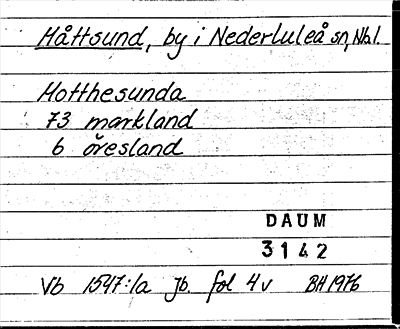 Måttsund, by i Nederluleå sn, Nbl.
Motthesunda
73 markland
6 öresland
DAUM
3142
Vb 1547:1a Jb. fol 4v BH 1976